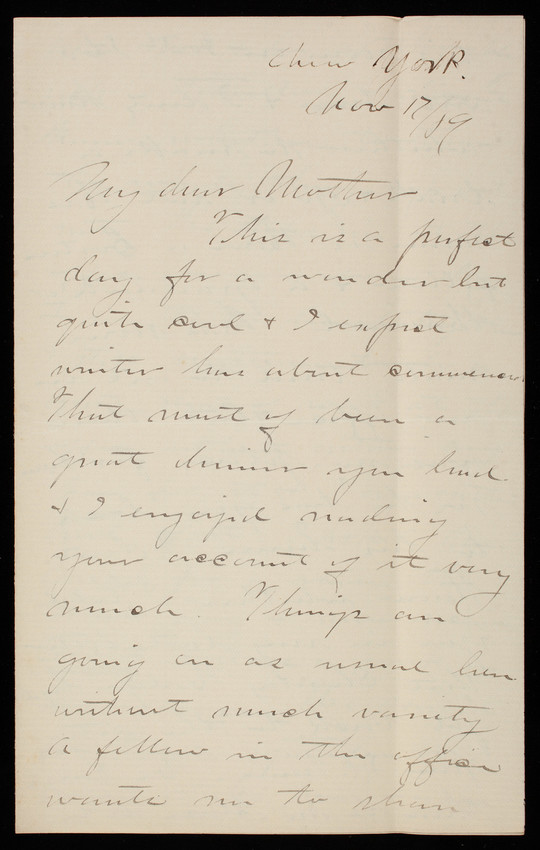 New York.
Nov 17/79
My dear Mother
This is a perfect
day for a wonder but
quite cool & I expect
winter has about commenced.
That must of been a
great dinner you had
& I enjoyed reading
your account of it very
much. Things are
going on as usual here
without much variety
A fellow in the office
wants me to share